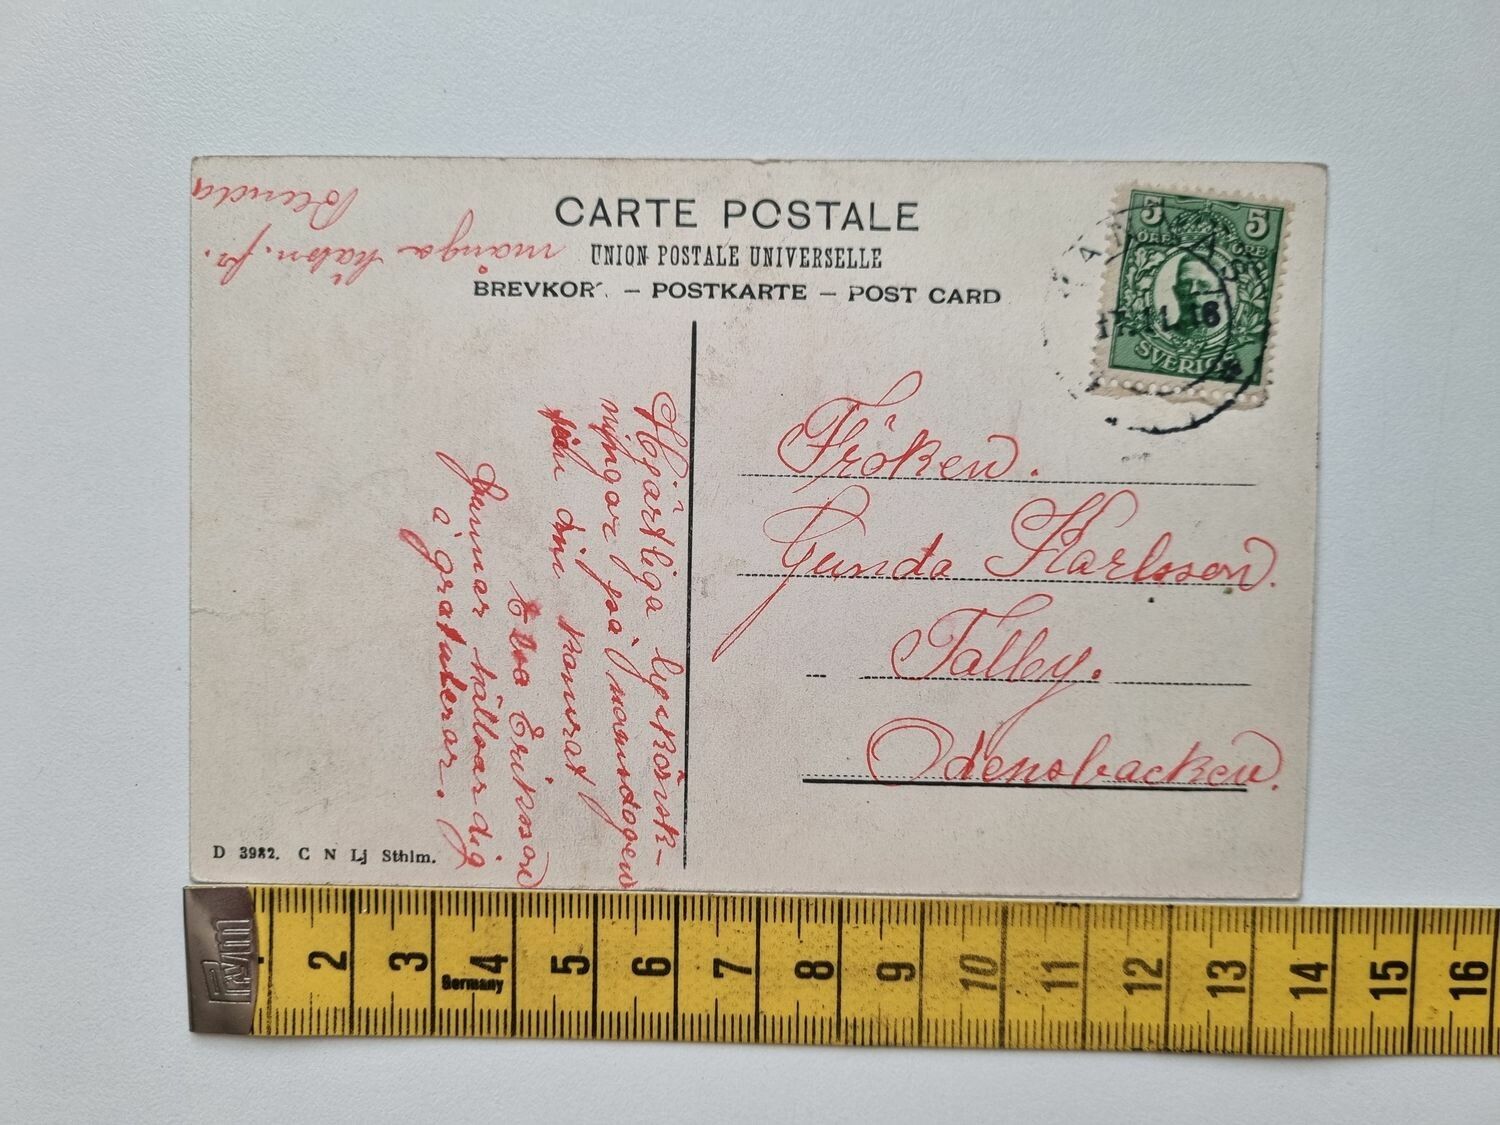 CARTE POSTALE
UNION POSTALE UNIVERSELLE
BREVKORT. – POSTKARTE – POST CARD
5 5
ÖRE ÖRE
SVERIGE
17.11.16
Fröken.
Gunda Karlsson.
Talby.
Odensbacken.
Hjärtliga lyckönsk-
ningar på namsdagen
från din kamrat
Elsa Eriksson
Gunnar hällsar dig
å gratulerar.
många häls. fr.
Blenda
D 3982. C N Lj Sthlm.
Prym
2 3 4 5 6 7 8 9 10 11 12 13 14 15 16
Germany